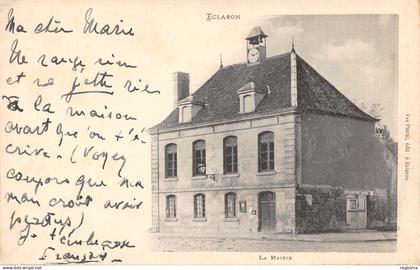 ECLARON
Ma chère Marie
Ne range rien
et ne jette rien
à la maison
avant que l'on t'é-
crive. (Voyez
coupons que ma
man croit avoir
perdus)
Je t'embrasse
François
Vve Plazat, édit. à Eclaron
LA MAIRIE